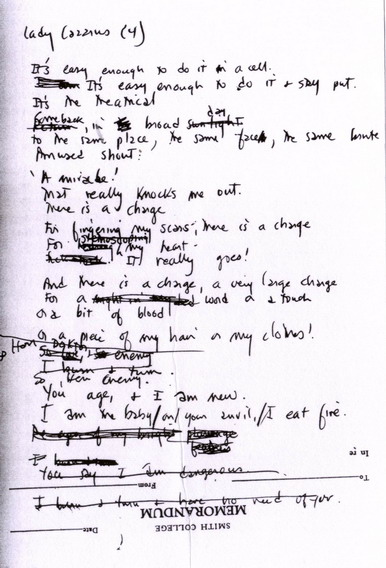 Lady Lazarus (4)
It's easy enough to do it in a cell.
It's easy enough to do it & stay put.
It's the theatrical
Comeback in broad day
to the same place, the same face, the same brute
Amused shout:
'A miracle!'
That really knocks me out.
There is a charge
For fingering my scars, there is a charge
For my heart -
It really goes!
And there is a charge, a very large charge
For a word or a touch
Or a bit of blood
Or a piece of my hair or my clothes!
So Herr Doktor,
enemy
I burn & turn
So Herr enemy.
You age, & I am new.
I am the baby/on/your anvil,//I eat fire.
You say I am dangerous
In re
To
From
I burn & turn & have no need of you.
MEMORANDUM
SMITH COLLEGE
Date